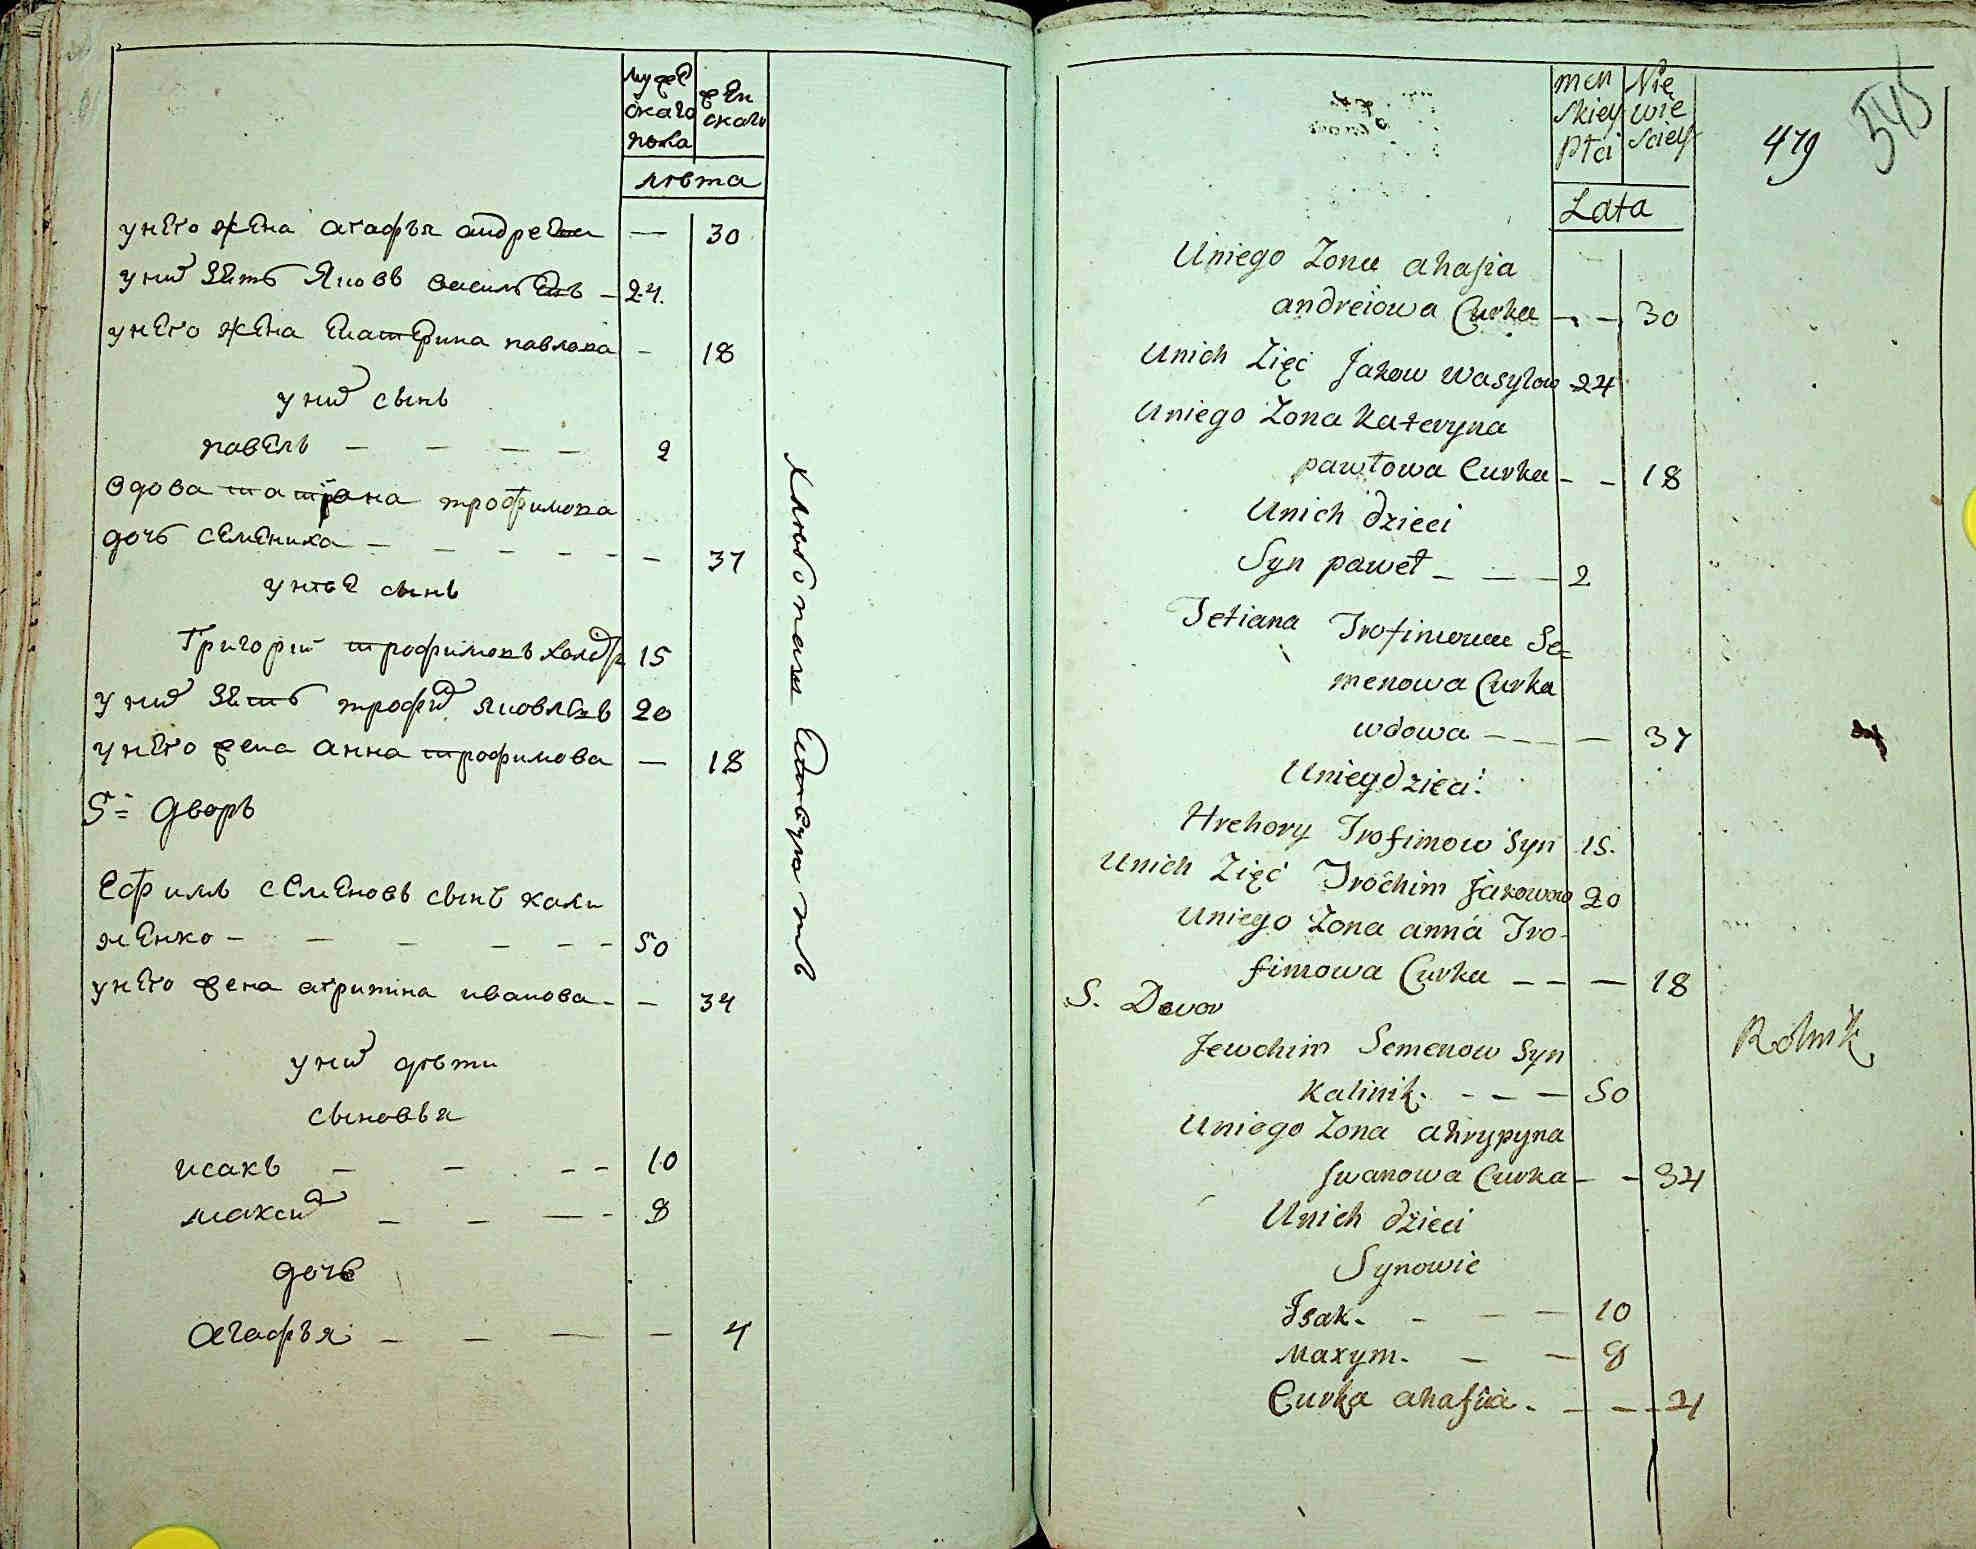 мужескаго пола
женскаго
лѣта
у него жена агафья андреева — 30
у них зять Яковъ василѣвъ — 24.
у него жена Екатерина павлова — 18
у них сынъ
павелъ — — — — 2
вдова татияна трофимова
дочь семениха — — — — — — 37
у нѣе сынъ
Григорій трофимовъ 15
у них зять трофим яковлевъ 20
у него жена анна трофимова — 18
5й дворъ
Ефимъ семеновъ сынъ кали
ненко — — — — — — 50
у него жена агрипина иванова — — 34
у них дѣти
сыновья
исакъ — — — — 10
максим — — — — 8
дочь
агафья — — — — 4
хлѣбопашествуютъ
men
skiey
płci
Nie
wie
sciey
Lata
479
545
Uniego Zona ahafia
andreiowa Curka — — 30
Unich Zięć Jakow Wasylow 24
Uniego Zona Kateryna
pawłowa Curka — — 18
Unich dzieci
Syn paweł — — — 2
Tetiana Trofimowa Se=
menowa Curka
wdowa — — — — 37
Uniey dzieci:
Hrehory Trofimow Syn 15.
Unich Zięć Trochim Jakowow 20
Uniego Zona anna Tro-
fimowa Curka — — — 18
5. Dwor
Jewchim Semenow Syn
Kalinik. — — — 50
Rolnik
Uniego Zona ahrypyna
Jwanowa Curka — — 34
Unich dzieci
Synowie
Isak. — — — 10
Maxym. — — 8
Curka ahafia. — — — 4